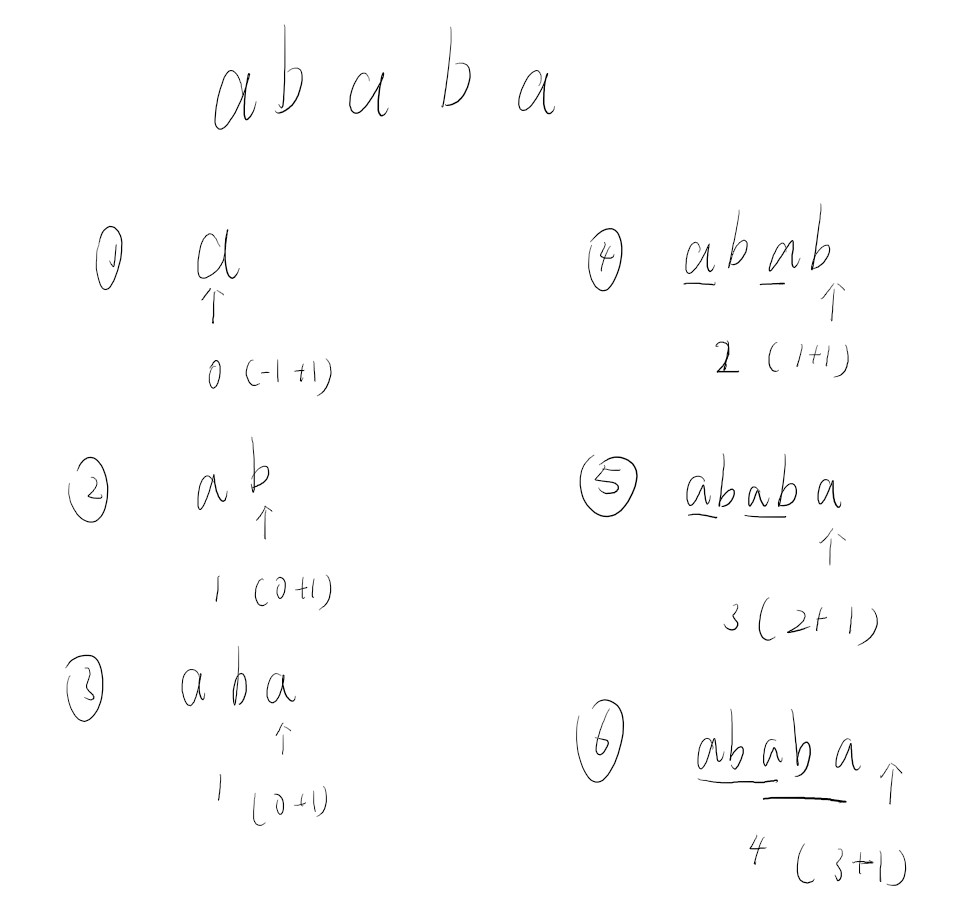 a b a b a
① a
↑
0 (-1+1)
② a b
↑
1 (0+1)
③ a b a
↑
1 (0+1)
④ a b a b
↑
2 (1+1)
⑤ a b a b a
↑
3 (2+1)
⑥ a b a b a ↑
4 (3+1)